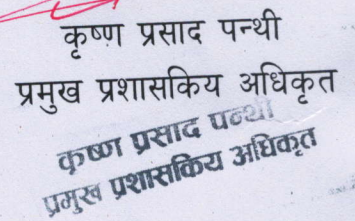 कृष्ण प्रसाद पन्थी
प्रमुख प्रशासकिय अधिकृत
कृष्ण प्रसाद पन्थी
प्रमुख प्रशासकिय अधिकृत